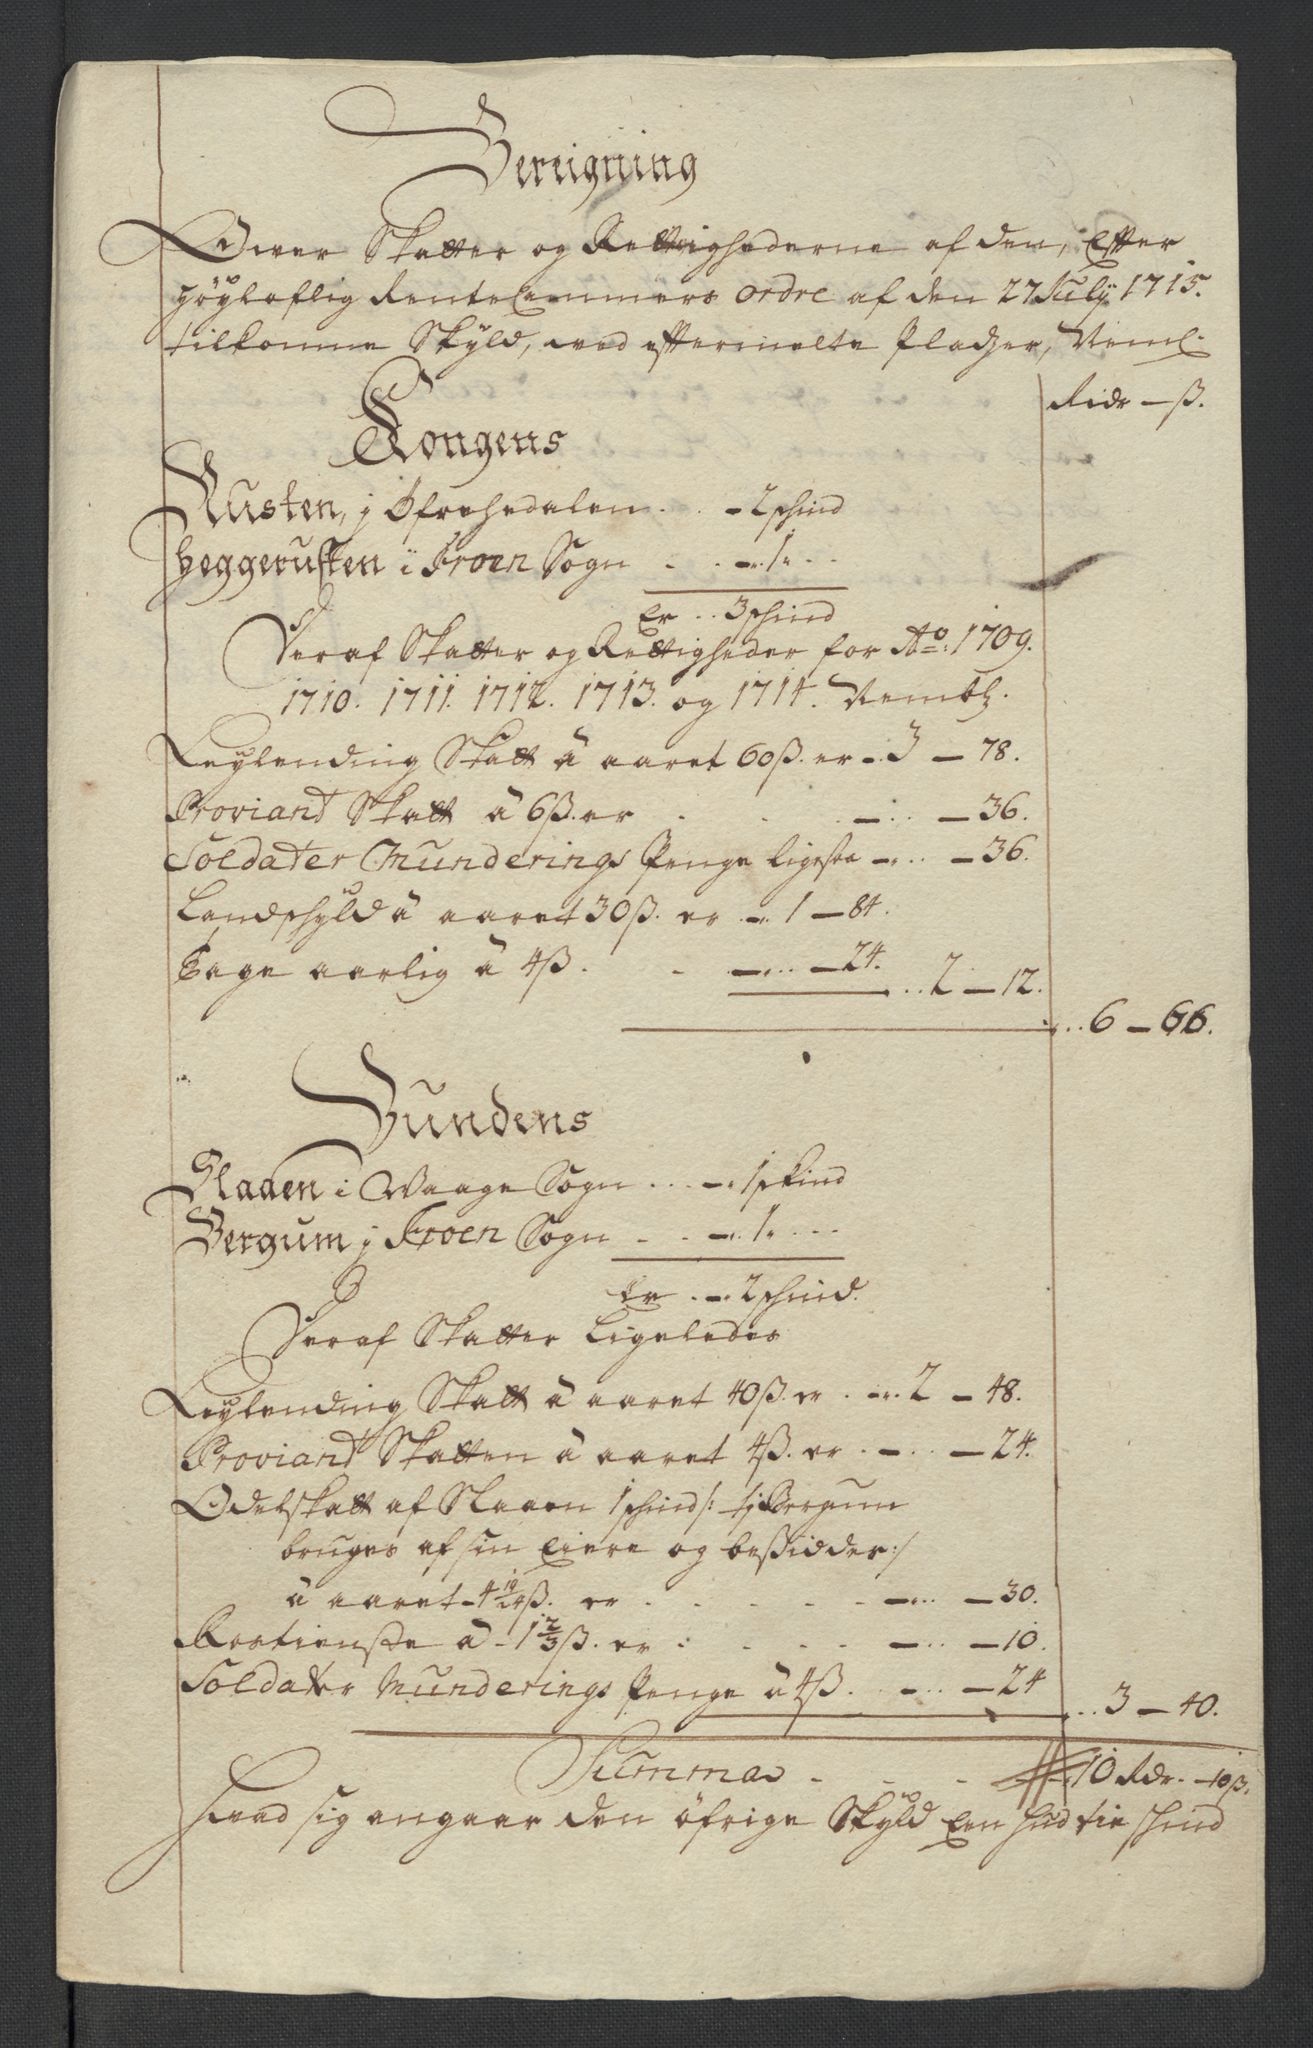 Bereigning
Over Skatter og Rettighederne af den, Efter
höyloflig Rente Cammers ordre af den 27 July 1715.
tilkomne Skyld, ved efftermelte Pladzer, Neml.
Ridr — ß.
Kongens
Rusten, j Öfrehedalen . . – 2 schind
Heggerusten i Froen Sogn . . – . 1 . – . .
Er . . 3 schind
Deraf Skatter og Rettigheder for Ao: 1709.
1710. 1711. 1712. 1713. og 1714. Nembl.
Leylending Skatt â aaret 60 ß. er – . 3 – 78.
Proviant Skatt â 6 ß. er . . . – . . – 36.
Soldater Munderings Penge ligesaa – . . – 36.
Landschyld â aaret 30 ß. er – . 1 – 84.
Tage aarlig â 4 ß. . . – . . – 24.
. . 2 – 12.
. . 6 – 66.
Bundens
Slaaen i Waage Sogn . . – . 1 skind
Bergum j Froen Sogn . . – . 1 . – . .
Er . – . 2 schind.
Deraf Skatter Ligeledes
Leylending Skatt â aaret 40 ß. er . – . 2 – 48.
Proviant Skatten â aaret 4 ß. er . – . . – 24.
Odelskatt af Slaaen 1 schind /: tj Bergum
bruges af sin Eiere og besidder :/
â aaret – 4 19/24 ß. er . . . . . – . . – 30.
Rostienste â – 1 2/3 ß. er . . . . – . . – 10.
Soldater Munderings Penge â 4 ß. . – . . – 24
. . 3 – 40.
Summa . . . 10 Rdr. – 10 ß.
Hvad sig angaar den öfrige Skyld Een Hud tie schind